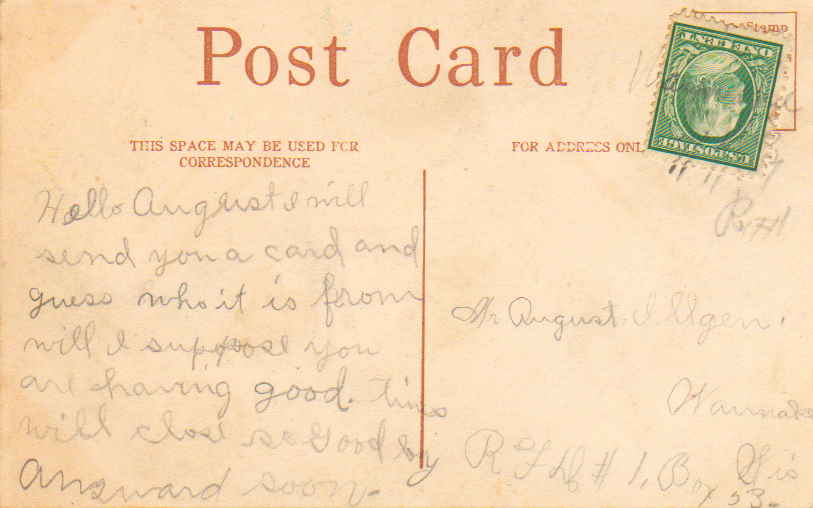 Post Card
Stamp
U.S. POSTAGE
ONE CENT
THIS SPACE MAY BE USED FOR
CORRESPONDENCE
FOR ADDRESS ONL
Hello August I will
send you a card and
guess who it is from
will I suppose you
are having good. times
will close so Good by
Answard soon-
Mr August Illgen.
R F D # 1, Box 53-
Wis